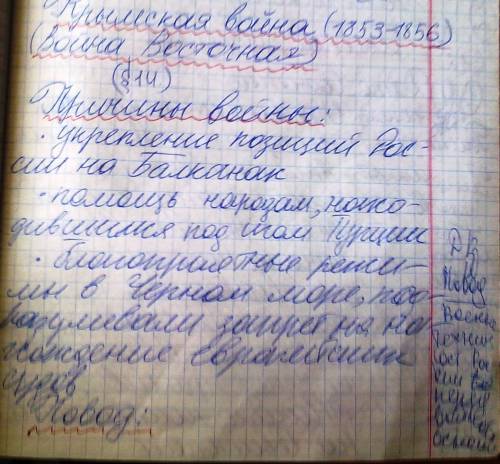 Крымская война (1853-1856)
(Война Восточная)
(§14)
Причины войны:
· укрепление позиций Рос-
сии на Балканах
· помощь народам, нахо-
дившимся под игом Турции
· благоприятные режи-
мы в Черном море, под-
разумевали запрет на на-
хождение европейских
судов
Повод:
ДЗ
Повод
Военно
технич
ост Рос
сии
перед
войной